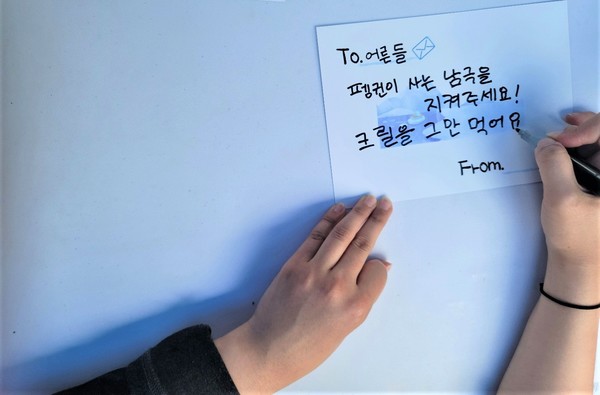 To. 어른들
펭귄이 사는 남극을
지켜주세요!
크릴을 그만 먹어요
From.